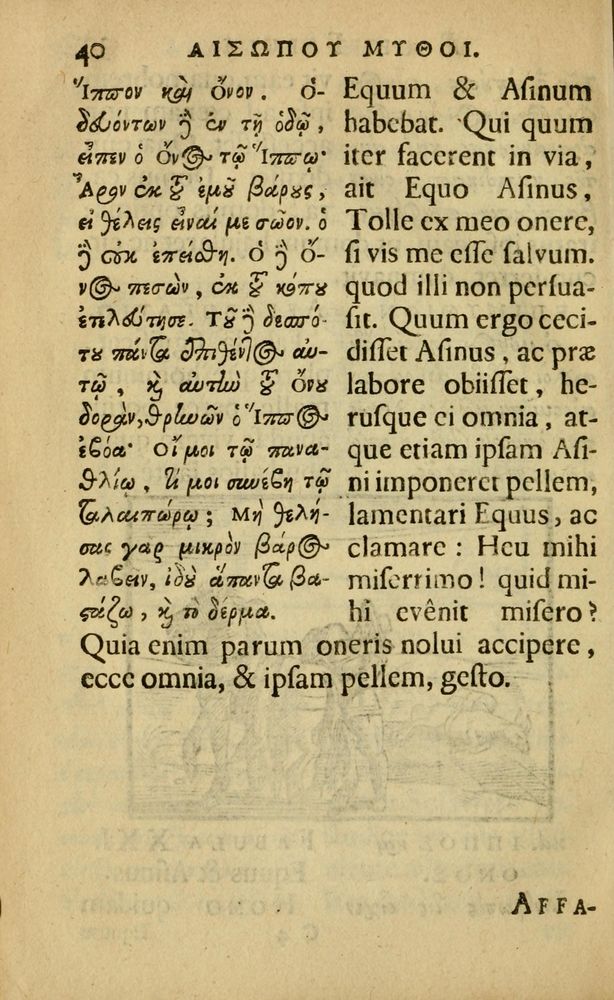 40 ΑΙΣΩΠΟΥ ΜΥΘΟΙ.
Ἵππον καὶ ὄνον. ὁ-
δευόντων δὲ ἐν τῇ ὁδῷ,
εἶπεν ὁ ὄνος τῷ Ἵππῳ·
Ἆρον ἐκ τοῦ ἐμοῦ βάρους,
εἰ θέλεις εἶναί με σῶον. ὁ
δὲ οὐκ ἐπείσθη. ὁ δὲ ὄ-
νος πεσὼν, ἐκ τοῦ κόπου
ἐτελεύτησε. Τοῦ δὲ δεσπό-
του πάντα ἐπιθέντος αὐ-
τῷ, καὶ αὐτὴν τοῦ ὄνου
δορὰν, θρηνῶν ὁ Ἵππος
ἐβόα· Οἴμοι τῷ πανα-
θλίῳ, τί μοι συνέβη τῷ
ταλαιπώρῳ; Μὴ θελή-
σας γαρ μικρὸν βάρος
λαβεῖν, ἰδοὺ ἅπαντα βα-
στάζω, καὶ τὸ δέρμα.
Equum & Asinum
habebat. Qui quum
iter facerent in via,
ait Equo Asinus,
Tolle ex meo onere,
si vis me esse salvum.
quod illi non persua-
sit. Quum ergo ceci-
disset Asinus, ac præ
labore obiisset, he-
rusque ei omnia, at-
que etiam ipsam Asi-
ni imponeret pellem,
lamentari Equus, ac
clamare: Heu mihi
miserrimo! quid mi-
hi evênit misero?
Quia enim parum oneris nolui accipere,
ecce omnia, & ipsam pellem, gesto.
AFFA-